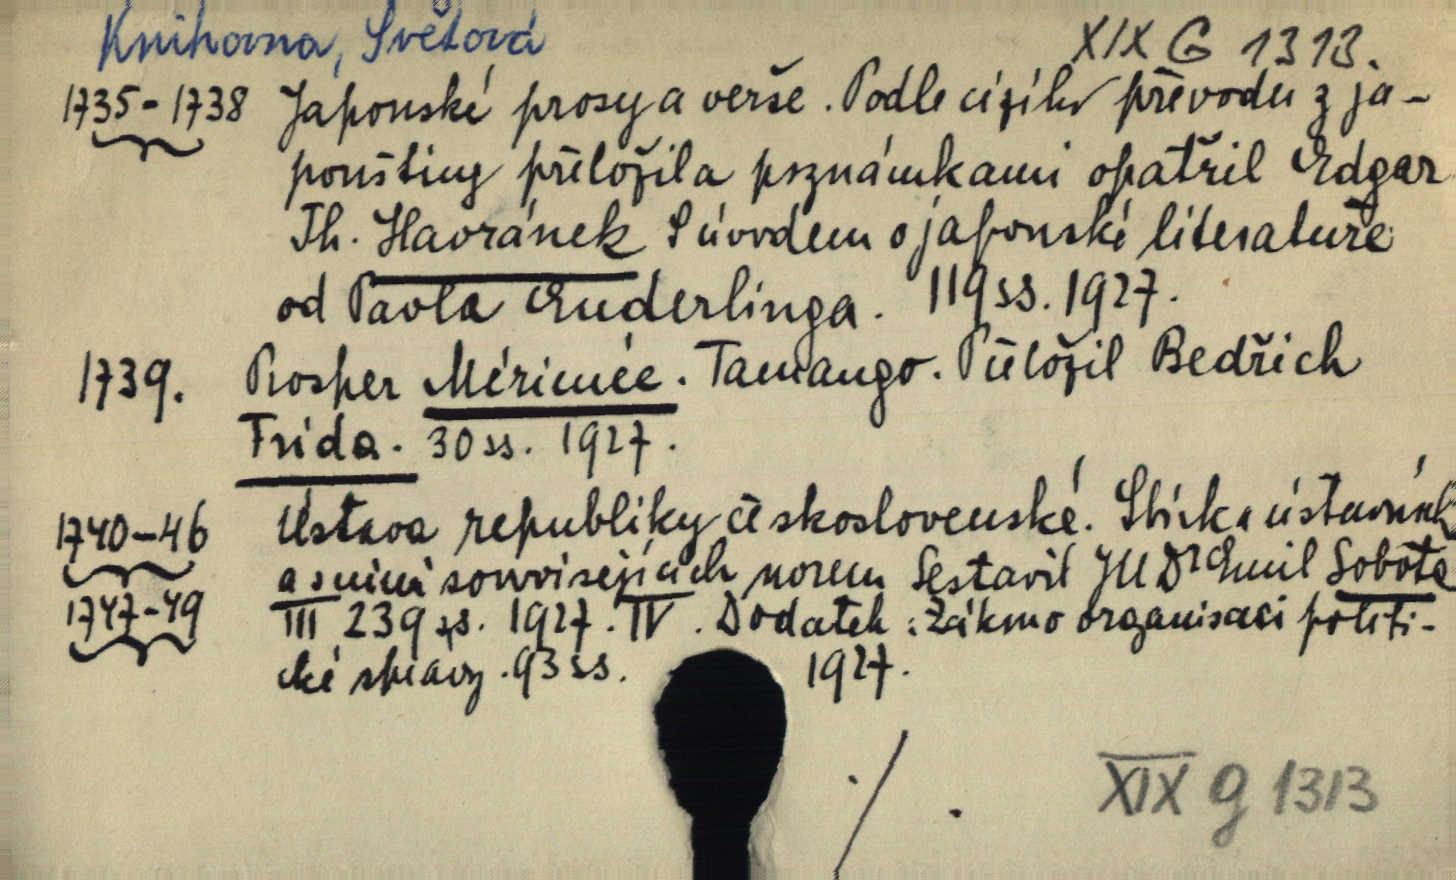 Knihovna, Světová
XIX G 1313.
1735-1738 Japonské prosy a verše. Podle cizíhο převodu z ja-
ponštiny přeložil a poznámkami opatřil Edgar
Th. Havránek S úvodem o japonské literatuře
od Pavla Enderlinga. 119 ss. 1927.
1739. Prosper Mérimée. Tamango. Přeložil Bedřich
Frida. 30 ss. 1927.
1740-46 Ústava republiky československé. Sbírka ústavních
a s nimi souvisejících norem Sestavil JUDr Emil Sobota
1747-49 III 239 ss. 1927. IV. Dodatek: Zákon o organisaci politi-
cké správy. 93 ss. 1927.
./.
XIX g 1313